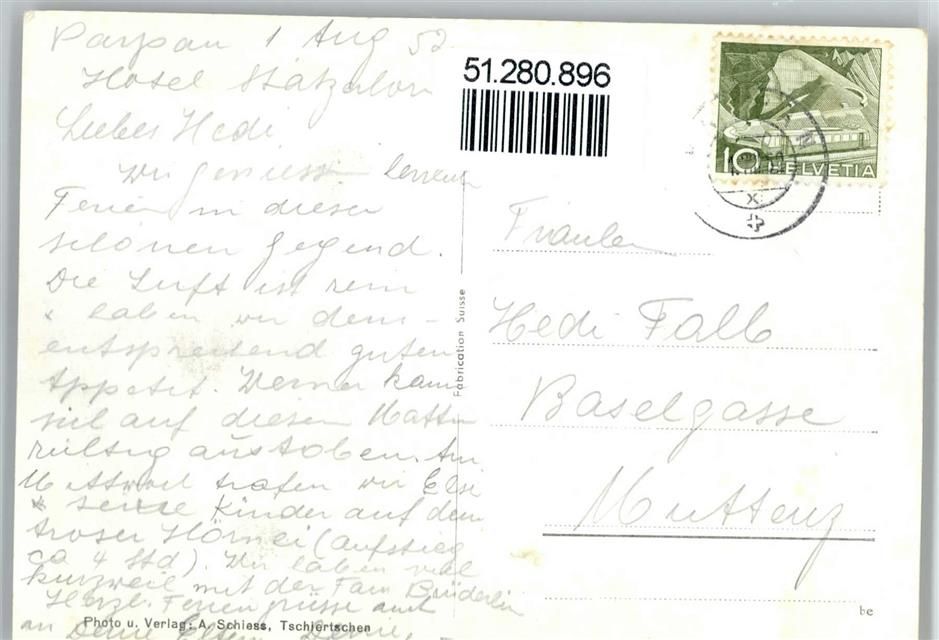 Parpan 1 Aug 52
Hotel Stätzerhorn
Liebes Hedi
Wir geniessen
Ferien in dieser
schönen Gegend.
Die Luft ist rein
& haben wir dem-
entsprechend guten
Appetit. Werner kann
sich auf diesen Matten
richtig austoben. Am
Mittwoch trafen wir Else
& seine Kinder auf dem
Aroser Hörnli (Aufstieg
ca 4 Std). Wir haben viel
kurzweil mit der Fam Brüderlin
Herzl. Feriengrüsse auch
an Deine Eltern Deine
Photo u. Verlag: A. Schiess, Tschiertschen
Fabrication Suisse
51.280.896
10 HELVETIA
Fräulein
Hedi Falb
Baselgasse
Muttenz
be